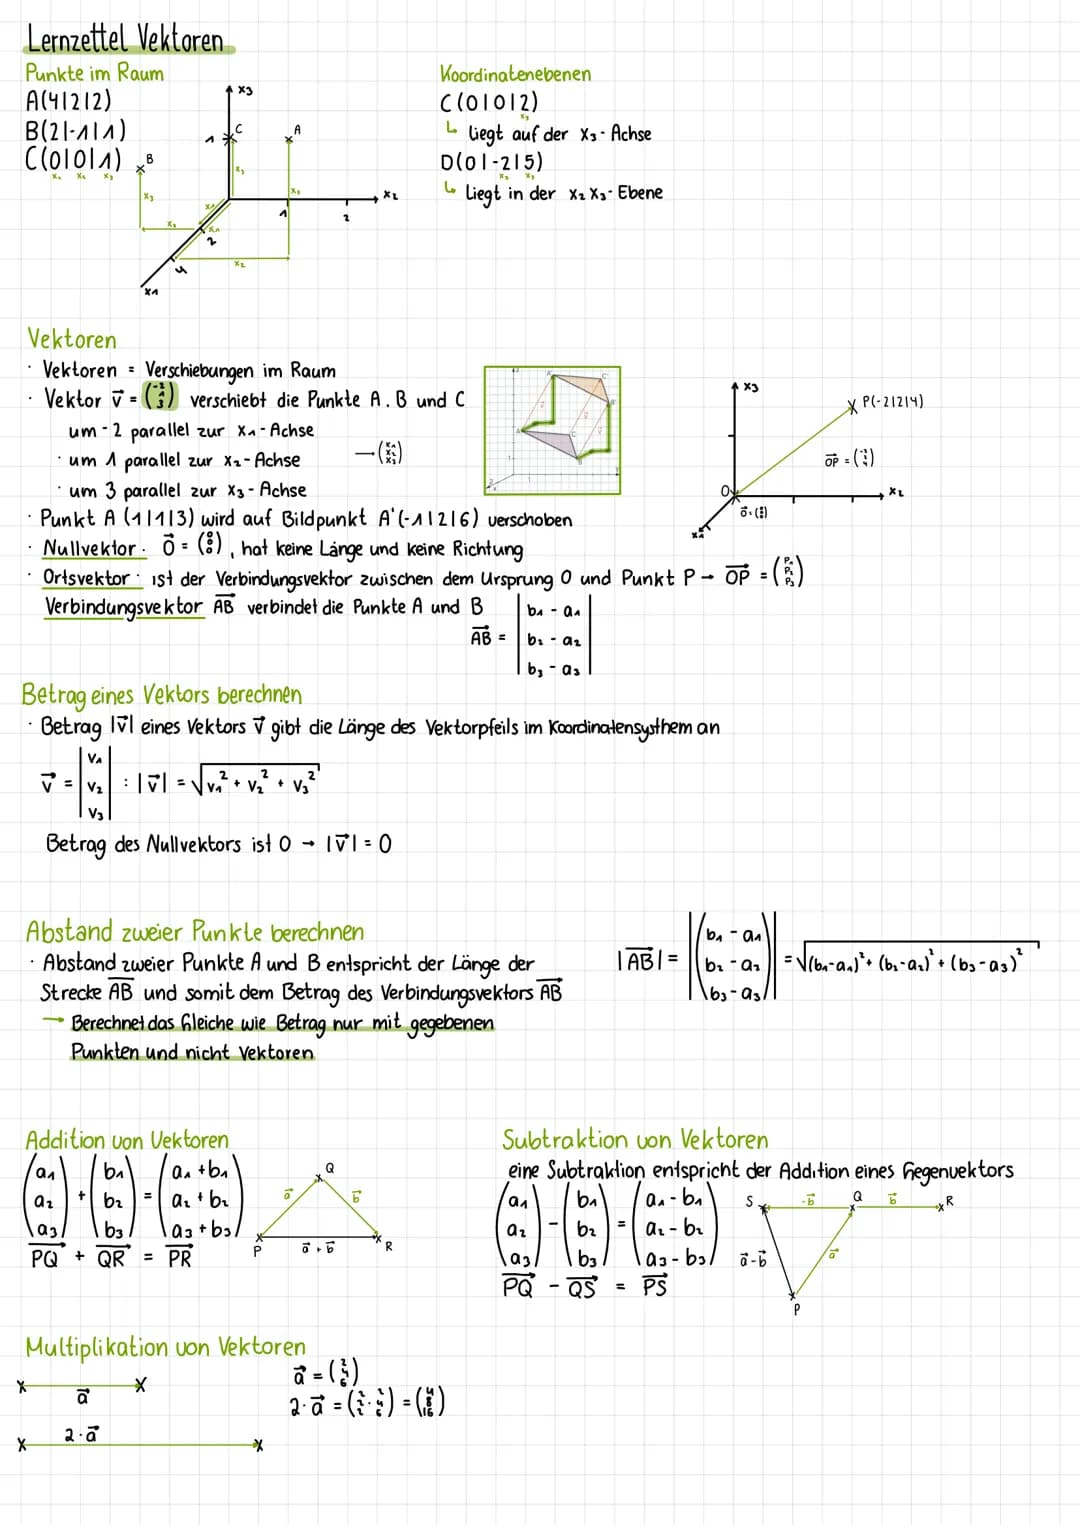 Lernzettel Vektoren
Punkte im Raum
A(4|2|2)
B(2|-1|1)
C(0|0|1)
x₁ x₂ x₃
x₃
C
A
B
1
x₃
x₃
x₃
x₂
x₁
1
2
x₂
x₁
2
x₂
4
x₁
Koordinatenebenen
C(0|0|2)
x₃
↳ liegt auf der x₃-Achse
D(0|-2|5)
x₂ x₃
↳ Liegt in der x₂x₃-Ebene
Vektoren
· Vektoren = Verschiebungen im Raum
· Vektor v⃗ = (-2 1 3) verschiebt die Punkte A, B und C
um -2 parallel zur x₁-Achse
· um 1 parallel zur x₂-Achse → (x₁ x₂ x₃)
· um 3 parallel zur x₃-Achse
· Punkt A (1|1|3) wird auf Bildpunkt A'(-1|2|6) verschoben
· Nullvektor: 0⃗ = (0 0 0), hat keine Länge und keine Richtung
· Ortsvektor: ist der Verbindungsvektor zwischen dem Ursprung O und Punkt P → OP⃗ = (P₁ P₂ P₃)
Verbindungsvektor AB⃗ verbindet die Punkte A und B
AB⃗ = | b₁ - a₁ |
| b₂ - a₂ |
| b₃ - a₃ |
x₃
P(-2|2|4)
OP⃗ = (-2 2 4)
O
x₂
0⃗ = (0 0 0)
x₁
Betrag eines Vektors berechnen
· Betrag |v⃗| eines Vektors v⃗ gibt die Länge des Vektorpfeils im Koordinatensysthem an
v⃗ = | v₁ v₂ v₃ | : |v⃗| = √v₁² + v₂² + v₃²
Betrag des Nullvektors ist 0 → |v⃗| = 0
Abstand zweier Punkte berechnen
· Abstand zweier Punkte A und B entspricht der Länge der
Strecke AB und somit dem Betrag des Verbindungsvektors AB
→ Berechnet das Gleiche wie Betrag nur mit gegebenen
Punkten und nicht Vektoren
|AB⃗| = |(b₁ - a₁ b₂ - a₂ b₃ - a₃)| = √(b₁-a₁)² + (b₂-a₂)² + (b₃-a₃)²
Addition von Vektoren
(a₁ a₂ a₃) + (b₁ b₂ b₃) = (a₁ + b₁ a₂ + b₂ a₃ + b₃)
PQ⃗ + QR⃗ = PR⃗
Q
a⃗
b⃗
P
a⃗ + b⃗
R
Subtraktion von Vektoren
eine Subtraktion entspricht der Addition eines Gegenvektors
(a₁ a₂ a₃) - (b₁ b₂ b₃) = (a₁ - b₁ a₂ - b₂ a₃ - b₃)
PQ⃗ - QS⃗ = PS⃗
S
-b⃗
Q
b⃗
R
a⃗-b⃗
a⃗
P
Multiplikation von Vektoren
a⃗
2·a⃗
a⃗ = (2 4 6)
2·a⃗ = (2·2 2·4 2·6) = (4 8 16)